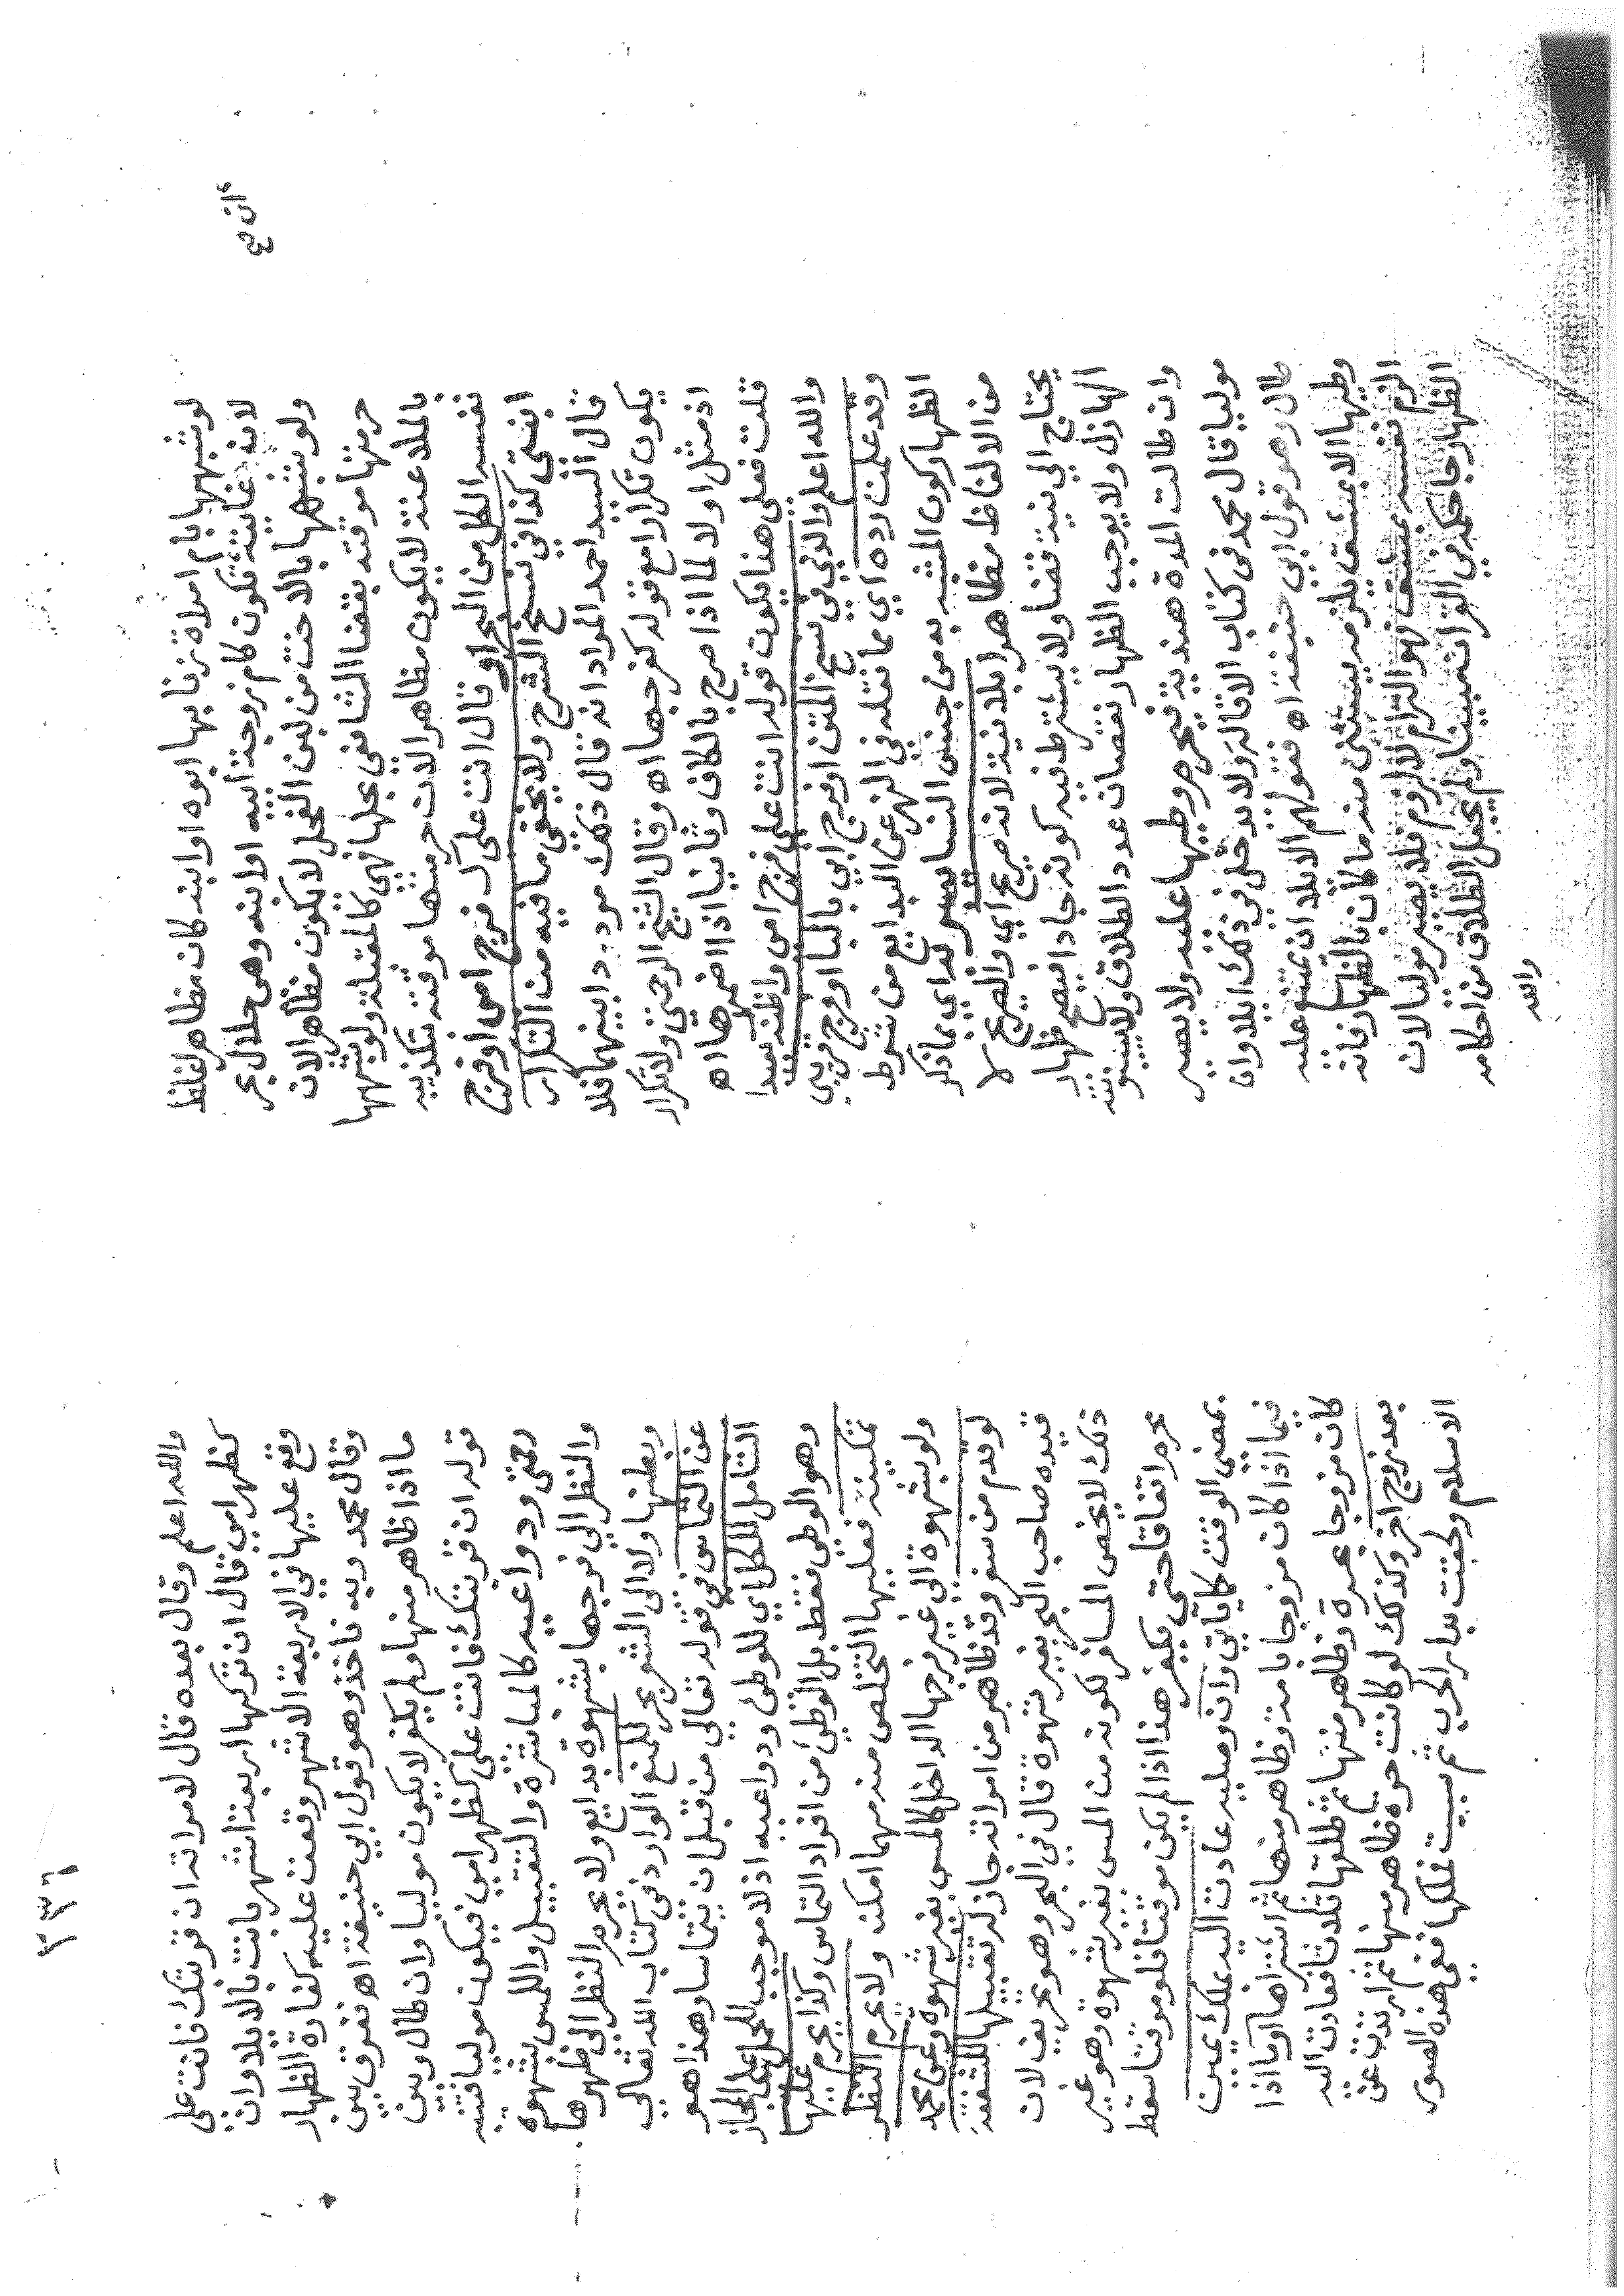 لو شبهها بام امراة زنا بها ابوه او ابنه كان مظاهرا لغلظ
لانه غايته تكون كام زوجة ابيه او ابنه وهي حلال بحر
ولو شبهها بالاخت من لبن الفحل لا يكون مظاهرا لان
حرمتها موقتة بقضا الشافعي بحلها فهي كالمقبلة ولو شبهها
بالملاعنة لا يكون مظاهرا لان حرمتها موقتة بتكذيبه
نفسه الكل من البحر قال انت علي ك فرج امي او فرج
ابنتي كذا في نسخ الشرح ولا يخفى ما فيه من التكرار
قال السيد احمد المراد انه قال ذلك مرددا بينهما فلا
يكون تكرارا مع قوله كفرجها اه وقال الشيخ الرحمتي ولا تكرار
اذ مثل اولا لما اذا صرح بالكاف وثانيا اذا اضمرها اه
قلت فعلى هذا يكون قوله انت علي فرج امي واظنه بعيدا
والله اعلم والذي في نسخ المتن او فرج ابي بالبا او فرج قريبي
وقد علمت رده اي مما نقله في النهر عن البدايع من شروط
الظهار كون المشبه به من جنس النسا يصير به اي بما ذكر
من الالفاظ مظاهرا بلا نية لانه صريح اي والصريح لا
يحتاج الى نية قضا ولا يشترط فيه كونه جادا فيصح ظهار
الهازل ولا يوجب الظهار نقصان عدد الطلاق ولا بينونة
وان طالت المدة هندية فيحرم وطيها عليه ولا يصير
موليا قال محمد في كتاب الاقالة ولا يدخل في ذلك ايلا وان
طال وهو قول ابي حنيفة اه فقولهم الايلا ان تمتنع عليه
وطيها الا بمشق يلزمه يستثنى منه ما كان بالظهار فانه
الزم نفسه بشاق فهو التزام لا لزوم فلا يصير موليا لان
الظهار جا حكمه في القران مبينا ولم يجعل الطلاق من احكامه
والله
٢٣٦
والله اعلم وقال بعده قال لامراته ان قربتك فانت علي
كظهر امي قال ان تركها اربعة اشهر بانت بالايلا وان
وقع عليها في الاربعة الاشهر وقعت عليه كفارة الظهار
وقال محمد وبه ناخذ وهو قول ابي حنيفة اه ففرق بين
ما اذا ظاهر منها ولم يكفر لا يكون موليا وان طال وبين
قوله ان قربتك فانت علي كظهر امي فيكون موليا فتنبه
رحمتي ودواعيه كالمباشرة والتقبيل واللمس بشهوة
والنظر الى فرجها بشهوة بدايع ولا يحرم النظر الى ظهرها
وبطنها ولا الى الشعر بحر للمنع الوارد في كتاب الله تعالى
عن التماس في قوله تعالى من قبل ان يتماسا وهذا هو
الشامل للكل اي للوطئ ودواعيه اذ لا موجب للحمل على المجاز
وهو الوطي فقط بل الوطئ من افراد التماس وكذا يحرم عليها
تمكينه فعليها التخلص منه مهما امكن ولا يحرم النظر
ولو بشهوة الى غير فرجها الداخل كالمس بغير شهوة وعن محمد
لو قدم من سفر وقد ظاهر من امراته جاز له تقبيلها للشفقة
قيده صاحب البحر بغير شهوة قال في البحر وهو تحريف لان
ذلك لا يخص المسافر لكونه من المس بغير شهوة وهو غير
محرم اتفاقا حتى يكفر هذا اذا لم يكن موقتا فلو موقتا سقط
بمضي الوقت كما ياتي وان وصلية عادت اليه بملك يمين
فيما اذا كان مزوجا بامة وظاهر منها ثم اشتراها او ما اذا
كان مزوجا بحرة وظاهر منها ثم طلقها ثلاثا فعادت اليه
بعد زوج اخر وكذلك لو كانت حرة ظاهر منها ثم ارتدت عن
الاسلام ولحقت بدار الحرب ثم سبيت فملكها ففي هذه الصور